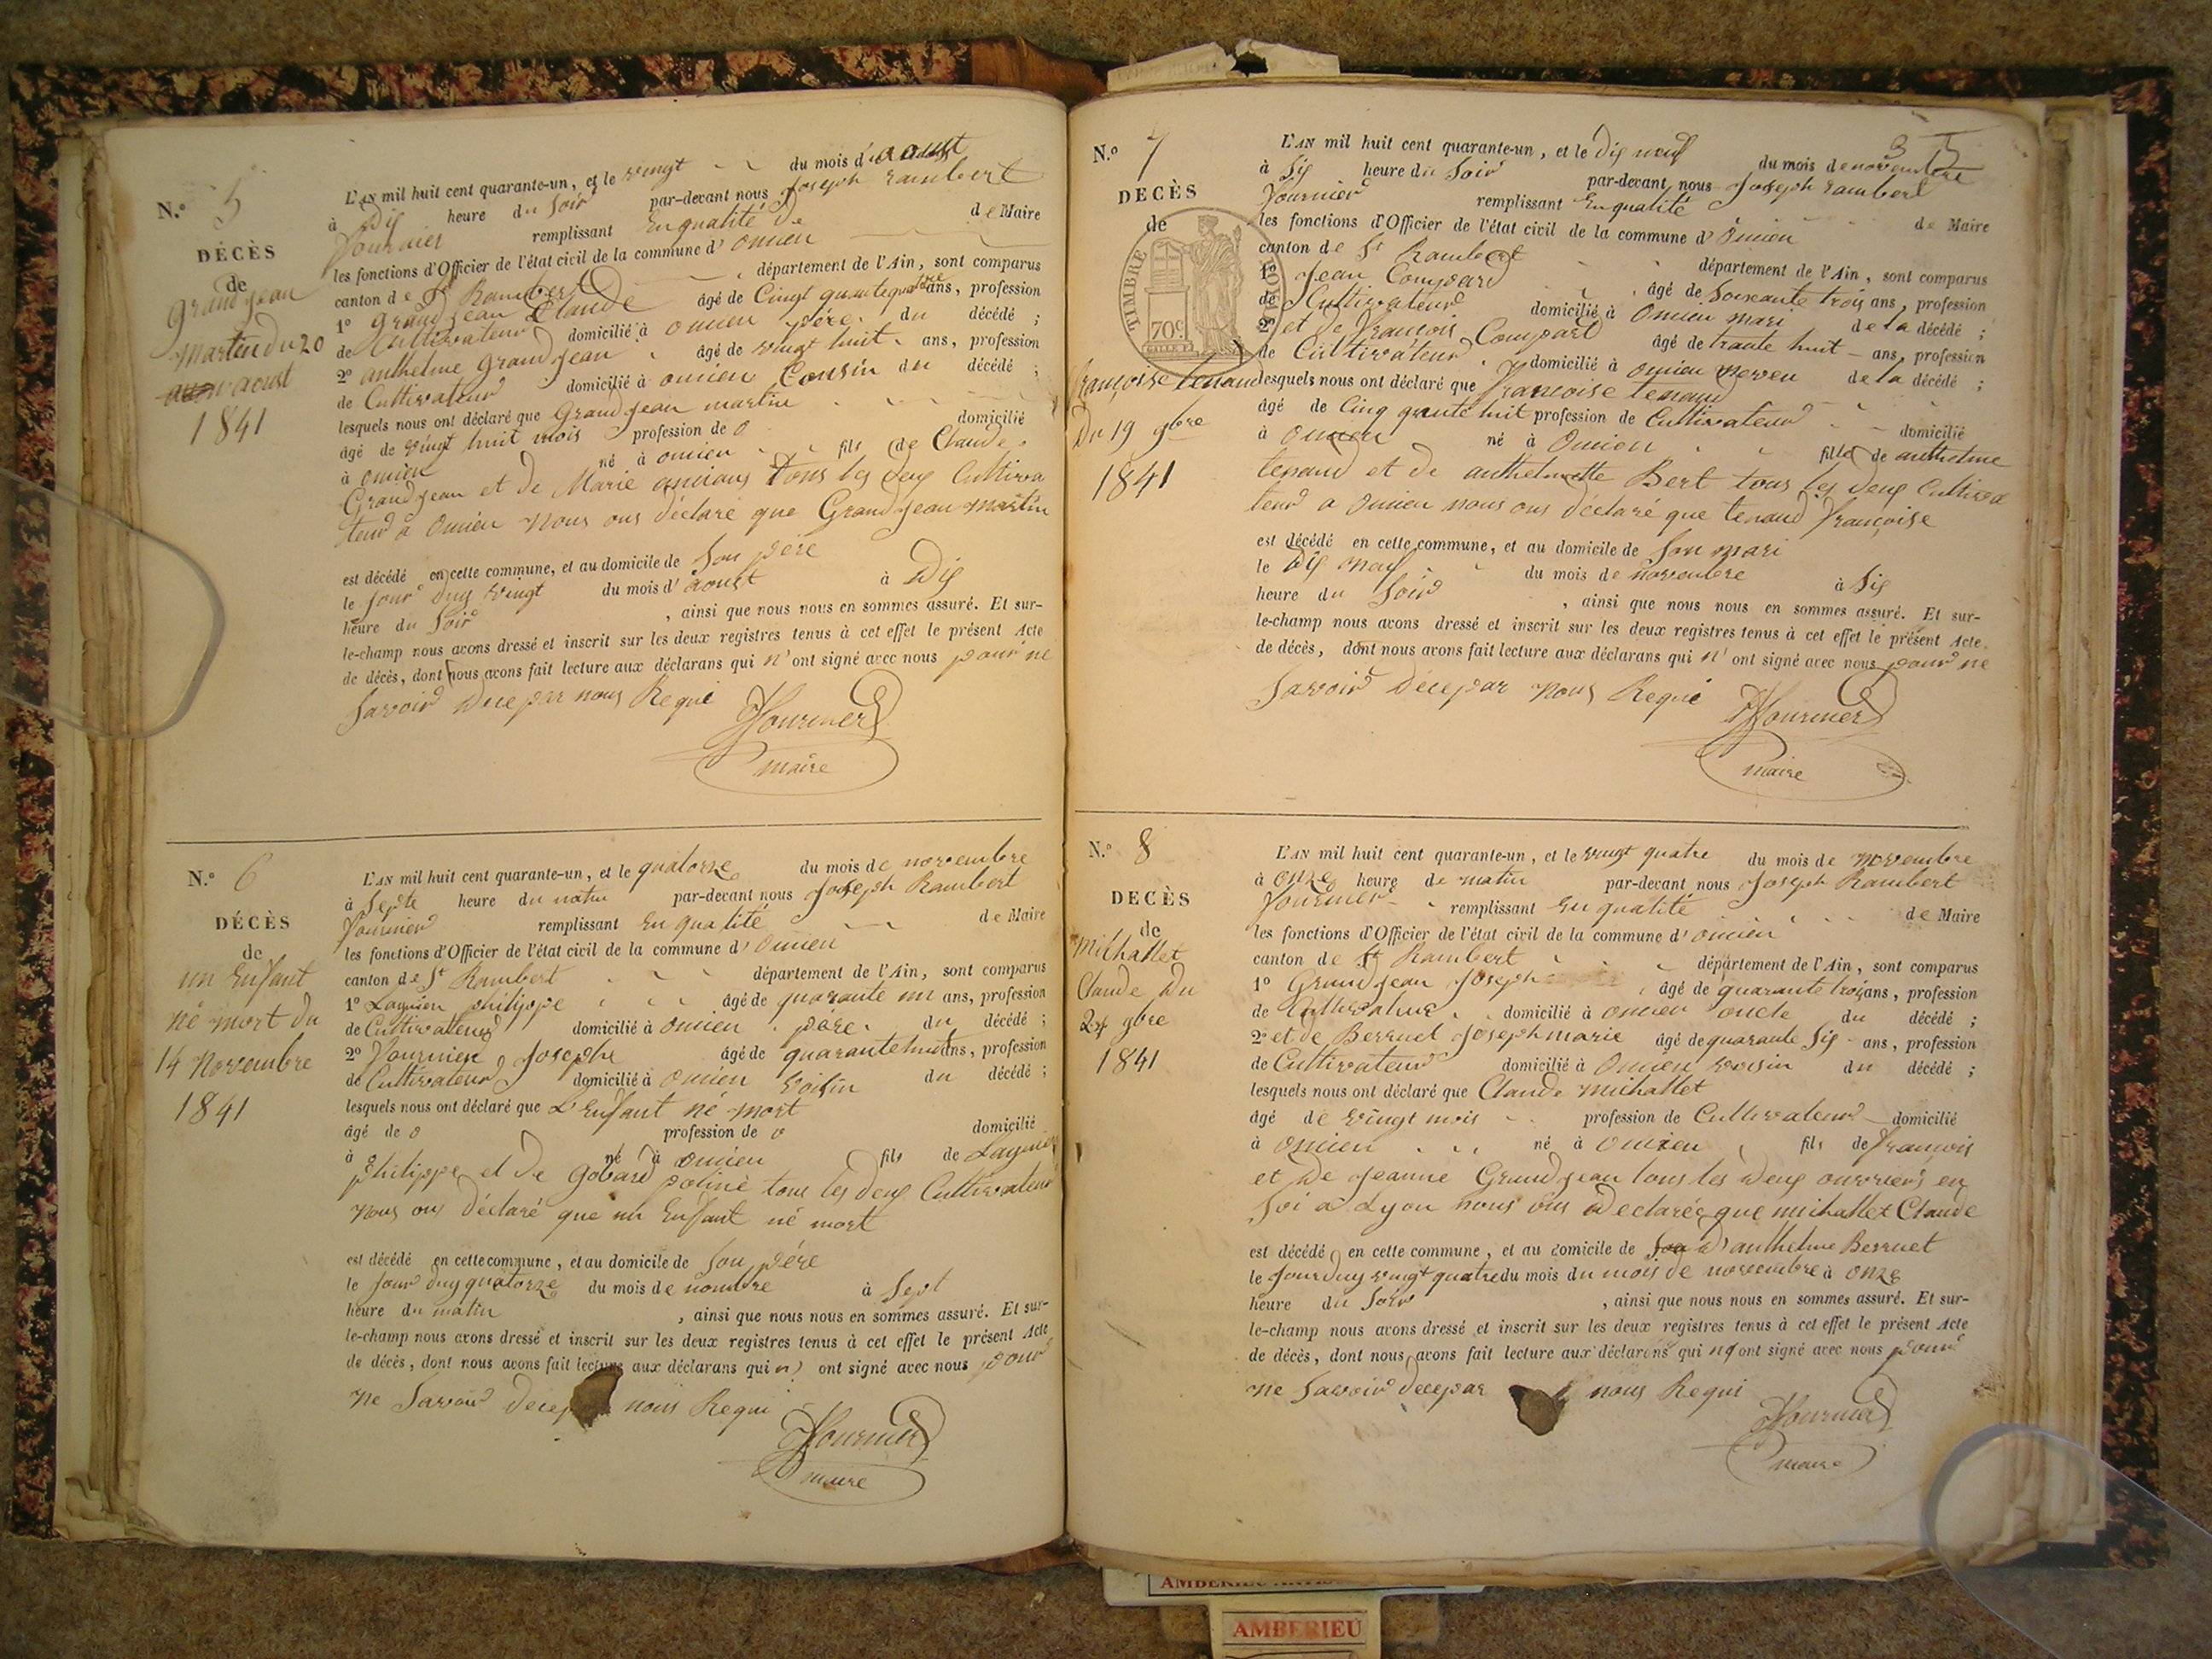 N.º 5
DÉCÈS
de
Grand jean
martin du 20
aoust
1841
L'AN mil huit cent quarante-un, et le vingt du mois d'aoust
à Dix heure du Soir par-devant nous Joseph Rambert
Fournier remplissant En qualité de de Maire
les fonctions d'Officier de l'état civil de la commune d'Oncieu
canton de St Rambert département de l'Ain, sont comparus
1º Grand jean Claude âgé de Cinqt quante quatre ans, profession
de Cultivateur domicilié à oncieu père du décédé ;
2º anthelme Grand jean âgé de vingt huit ans, profession
de Cultivateur domicilié à oncieu Cousin du décédé ;
lesquels nous ont déclaré que Grand jean martin
âgé de vingt huit mois profession de 0 domicilié
à oncieu né à oncieu fils de Claude
Grand jean et de Marie anciaus tous les deux Cultiva
teur a Oncieu nous ons déclaré que Grand jean martin
est décédé en cette commune, et au domicile de Son père
le jour duy vingt du mois d'aoust à Dix
heure du Soir , ainsi que nous nous en sommes assuré. Et sur-
le-champ nous avons dressé et inscrit sur les deux registres tenus à cet effet le présent Acte
de décès, dont nous avons fait lecture aux déclarans qui n'ont signé avec nous pour ne
Savoir Dece par nous Requi
JFournier
maire
N.º 6
DÉCÈS
de
un Enfant
né mort du
14 novembre
1841
L'AN mil huit cent quarante-un, et le quatorze du mois de novembre
à Septe heure du matin par-devant nous Joseph Rambert
Fournier remplissant En qualité de Maire
les fonctions d'Officier de l'état civil de la commune d'Oncieu
canton de St Rambert département de l'Ain, sont comparus
1º Laguien philippe âgé de quarante un ans, profession
de Cultivateur domicilié à oncieu père du décédé ;
2º Fournier Josephe âgé de quarante huit ans, profession
de Cultivateur domicilié à Oncieu voisin du décédé ;
lesquels nous ont déclaré que L'Enfant né mort
âgé de 0 profession de 0 domicilié
à 0 né à oncieu fils de
philippe et de Gobard poliné tous les deux Cultivateur
nous ons déclaré que un Enfant né mort
est décédé en cette commune, et au domicile de Son père
le jour duy quatorze du mois de nombre à Sept
heure du matin , ainsi que nous nous en sommes assuré. Et sur-
le-champ nous avons dressé et inscrit sur les deux registres tenus à cet effet le présent Acte
de décès, dont nous avons fait lecture aux déclarans qui n' ont signé avec nous pour
ne Savoir Dece nous Requi
JFournier
maire
35
N.º 7
DECÈS
de
TIMBRE ROYAL
70c
françoise tenaud
Du 19 9bre
1841
L'AN mil huit cent quarante-un, et le Dix neuf du mois de novembre
à Six heure du Soir par-devant nous Joseph Rambert
Fournier remplissant En qualité de Maire
les fonctions d'Officier de l'état civil de la commune d'Oncieu
canton de St Rambert département de l'Ain, sont comparus
1º Jean Compard âgé de Soixante trois ans, profession
de Cultivateur domicilié à Oncieu mari de la décédé ;
2º et de François Compard âgé de trante huit ans, profession
de Cultivateur domicilié à oncieu neveu de la décédé ;
lesquels nous ont déclaré que françoise tenaud
âgé de Cinq quante huit profession de Cultivateur domicilié
à Oncieu né à Oncieu fille de anthelme
tenaud et de anthelmette Bert tous les deux Cultiva
teur a Oncieu nous ons déclaré que tenaud françoise
est décédé en cette commune, et au domicile de Son mari
le Dix neuf du mois de novembre à Six
heure du Soir , ainsi que nous nous en sommes assuré. Et sur-
le-champ nous avons dressé et inscrit sur les deux registres tenus à cet effet le présent Acte
de décès, dont nous avons fait lecture aux déclarans qui n'ont signé avec nous pour ne
Savoir Dece par nous Requi
JFournier
maire
N.º 8
DECÈS
de
Michallet
Claude Du
24 9bre
1841
L'AN mil huit cent quarante-un, et le vingt quatre du mois de novembre
à Onze heure de matin par-devant nous Joseph Rambert
Fournier remplissant En qualité de Maire
les fonctions d'Officier de l'état civil de la commune d'oncieu
canton de St Rambert département de l'Ain, sont comparus
1º Grand jean Joseph âgé de quarante trois ans, profession
de Cultivateur domicilié à oncieu oncle du décédé ;
2º et de Berruet Joseph marie âgé de quarante Six ans, profession
de Cultivateur domicilié à Oncieu voisin du décédé ;
lesquels nous ont déclaré que Claude michallet
âgé de vingt mois profession de Cultivateur domicilié
à Oncieu né à Oncieu fils de françois
et de Jeanne Grand jean tous les deux ouvriers en
Soi a Lyon nous ons Declarée que michallet Claude
est décédé en cette commune, et au domicile de Son d'anthelme Berruet
le jour duy vingt quatre du mois du mois de novembre à onze
heure du Soir , ainsi que nous nous en sommes assuré. Et sur-
le-champ nous avons dressé et inscrit sur les deux registres tenus à cet effet le présent Acte
de décès, dont nous avons fait lecture aux déclarans qui n'ont signé avec nous pour
ne Savoir Dece par nous Requi
JFournier
maire
AMBERIEU